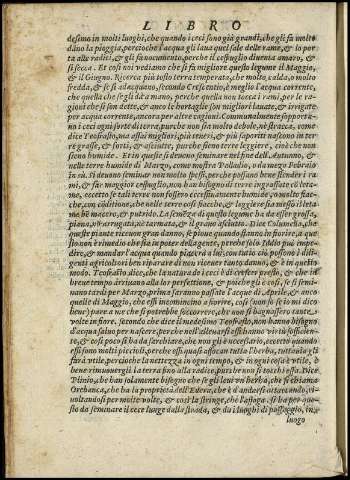 LIBRO
desimo in molti luoghi, che quando i ceci sono già grandi, che gli fa molto
danno la pioggia, percioche l'acqua gli laua quel sale delle rame, & lo por
ta alle radici, & gli fa nocumento, perche il cespuglio diuenta amaro, &
si secca. Et così noi vediamo che si fa migliore questo legume il Maggio,
& il Giugno. Ricerca più tosto terra temperata, che molto calda, o molto
fredda, & se si adacquano, secondo Crescentio, è meglio l'acqua corrente,
che quella che se gli dà a mano, perche quella non tocca i rami, per le ra-
gioni che si son dette, & anco le hortaglie son migliori lauate, & irrigate
per acqua corrente, ancora per altre cagioni. Communalmente sopporta-
no i ceci ogni sorte di terra, purche non sia molto debole, nè stracca, come
dice Teofrasto, ma assai migliori, più teneri, & più saporiti nascono in ter-
re grasse, & forti, & asciutte, purche sieno terre leggiere, cioè che non
sieno humide. Et in queste si deuono seminare nel fine dell'Autunno, &
nelle terre humide di Marzo, come nostra Palladio, o da mezo Febraio
in sù. Si deuono seminar non molto spessi, perche possano bene stendere i ra
mi, & far maggior cespuglio, non han bisogno di terre ingrassate di leta-
me, eccetto se tali terre non fossero eccessiuamente humide, o molto fiac-
che, con conditione, che nelle terre così fiacche, & leggiere sia messo il leta-
me bẽ macero, & putrido. La semẽza di questo legume ha da esser grossa,
piana, nõ arrugata, nè tarmata, & il grano asciutto. Dice Columella, che
queste piante riceuon gran danno, se pioue quando stanno in fiorire, a que
sto non è rimedio che stia in poter della gente, perche solo Iddio può impe-
dire, & mandar l'acqua quando piacerà a lui, con tutto ciò possono i dili-
genti agricoltori ben riparare di non riceuer tanto danno, & è in questo
modo. Teofrasto dice, che la natura de i ceci è di crescer presto, & che in
breue tempo arriuano alla lor perfettione, & poche gli è così, se si semi-
nano tardi per Marzo, prima saranno passate l'acque di Aprile, & anco
quelle di Maggio, che essi incomincino a fiorire, così (non so se io mi dico
bene) pare a me che si potrebbe soccorrere, che non si bagnassero tante
volte in fiore. secondo che dice il medesimo Teofrasto, non hanno bisogno
d'acqua salso per nascere, perche nell'altre uasi essi hanno virtù sufficien-
te, & così poco si ha da sarchiare, che non gli è necessario, eccetto quando
essi sono molti piccioli, perche essi quasi affocan tutta l'herba, tuttauia gli
sarà vtile, percioche la nettezza in ogni tempo, & in ogni cosa è vtile, è
bene rimouergli la terra fino alla radice, purche non si torchi essa. Dice
Plinio, che han solamente bisogno che se gli leui vn'herba, che si chiama
Orobanca, che ha la proprietà dell'Edera, che è d'andarsi attaccando, vi-
uoltandosi per molte volte, & così la stringe, che l'affoga. Si ha per que-
sto da seminare il cece lunge dalla strada, & da i luoghi di passaggio, in
luogo